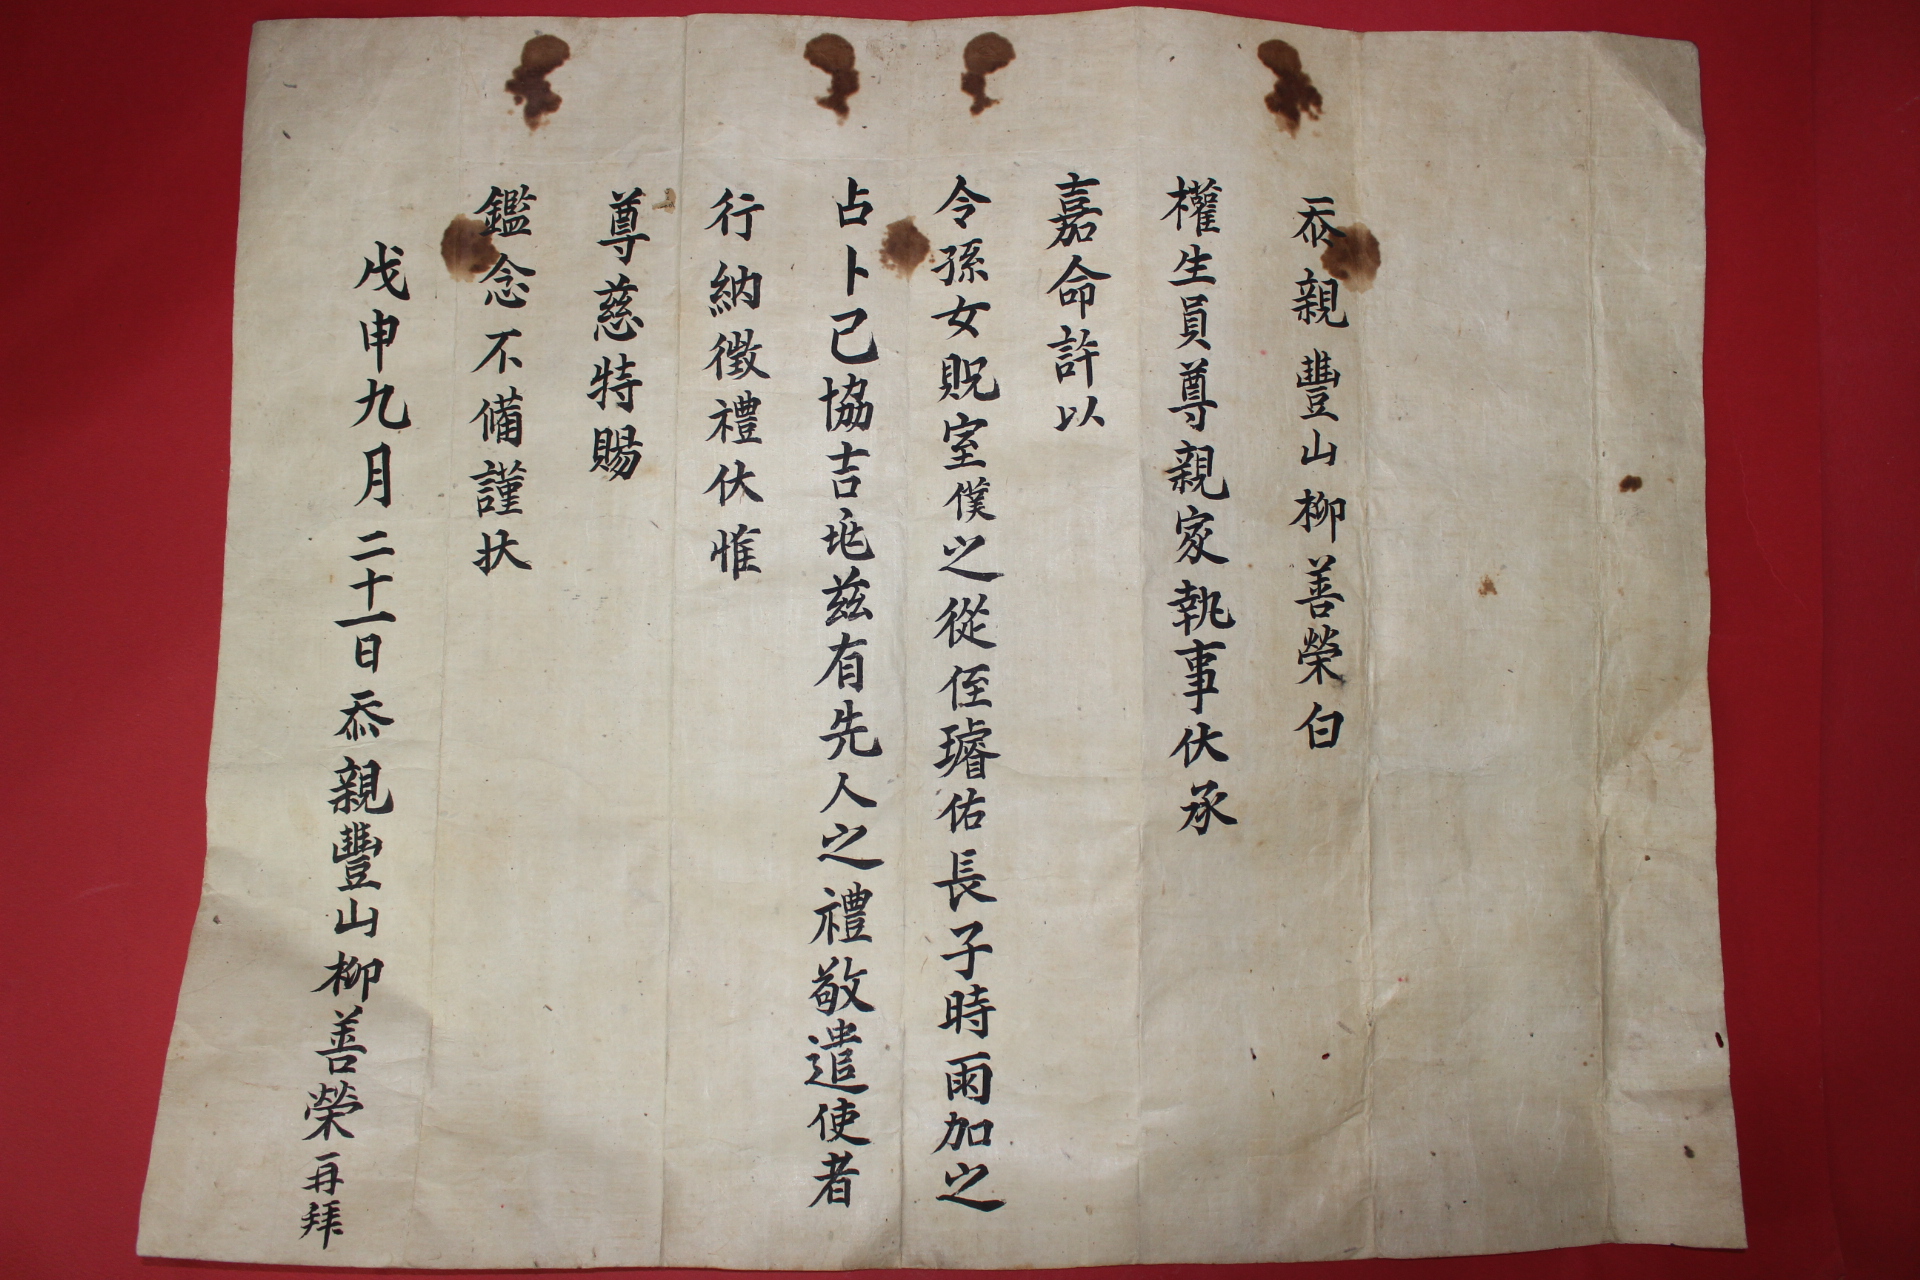 忝親豐山柳善榮白
權生員尊親家執事伏承
嘉命許以
令孫女貺室僕之從侄璿佑長子時雨加之
占卜已協吉兆玆有先人之禮敬遣使者
行納徵禮伏惟
尊慈特賜
鑑念不備謹狀
戊申九月二十一日忝親豐山柳善榮再拜